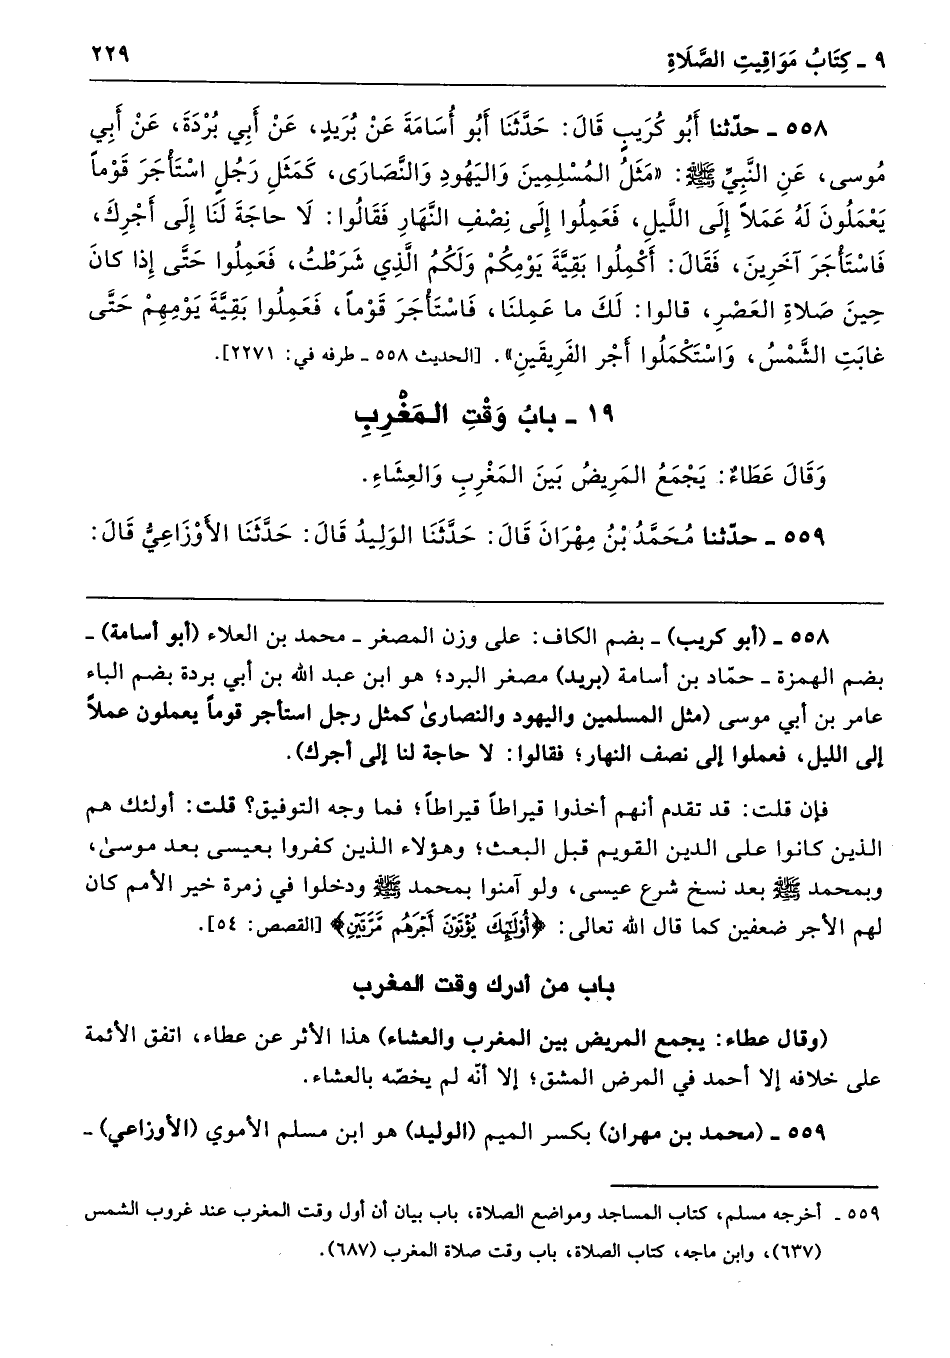 ٩ ـ كِتَابُ مَوَاقِيتِ الصَّلَاةِ
٢٢٩
٥٥٨ ـ حدّثنا أَبُو كُرَيبٍ قَالَ: حَدَّثَنَا أَبُو أُسَامَةَ عَنْ بُرَيدٍ، عَنْ أَبِي بُرْدَةَ، عَنْ أَبِي
مُوسى، عَنِ النَّبِيِّ ﷺ: «مَثَلُ المُسْلِمِينَ وَاليَهُودِ وَالنَّصَارَى، كَمَثَلِ رَجُلٍ اسْتَأْجَرَ قَوْماً
يَعْمَلُونَ لَهُ عَمَلاً إِلَى اللَّيلِ، فَعَمِلُوا إِلَى نِصْفِ النَّهَارِ فَقَالُوا: لَا حاجَةَ لَنَا إِلَى أَجْرِكَ،
فَاسْتَأْجَرَ آخَرِينَ، فَقَالَ: أَكْمِلُوا بَقِيَّةَ يَوْمِكُمْ وَلَكُمُ الَّذِي شَرَطْتُ، فَعَمِلُوا حَتَّى إِذا كانَ
حِينَ صَلاةِ العَصْرِ، قالوا: لَكَ ما عَمِلنَا، فَاسْتَأْجَرَ قَوْماً، فَعَمِلُوا بَقِيَّةَ يَوْمِهِمْ حَتَّى
غابَتِ الشَّمْسُ، وَاسْتَكْمَلُوا أَجْرَ الفَرِيقَينِ». [الحديث ٥٥٨ ـ طرفه في: ٢٢٧١].
١٩ ـ بابُ وَقْتِ المَغْرِبِ
وَقَالَ عَطَاءٌ: يَجْمَعُ المَرِيضُ بَينَ المَغْرِبِ وَالعِشَاءِ.
٥٥٩ ـ حدّثنا مُحَمَّدُ بْنُ مِهْرَانَ قَالَ: حَدَّثَنَا الوَلِيدُ قَالَ: حَدَّثَنَا الأَوْزَاعِيُّ قَالَ:
٥٥٨ ـ (أبو كريب) ـ بضم الكاف: على وزن المصغر ـ محمد بن العلاء (أبو أسامة) ـ
بضم الهمزة ـ حمّاد بن أسامة (بريد) مصغر البرد؛ هو ابن عبد الله بن أبي بردة بضم الباء
عامر بن أبي موسى (مثل المسلمين واليهود والنصارىٰ كمثل رجل استأجر قوماً يعملون عملاً
إلى الليل، فعملوا إلى نصف النهار؛ فقالوا: لا حاجة لنا إلى أجرك).
فإن قلت: قد تقدم أنهم أخذوا قيراطاً قيراطاً؛ فما وجه التوفيق؟ قلت: أولئك هم
الذين كانوا على الدين القويم قبل البعث؛ وهؤلاء الذين كفروا بعيسى بعد موسىٰ،
وبمحمد ﷺ بعد نسخ شرع عيسى، ولو آمنوا بمحمد ﷺ ودخلوا في زمرة خير الأمم كان
لهم الأجر ضعفين كما قال الله تعالى: ﴿أُوْلَٰٓئِكَ يُؤْتَوْنَ أَجْرَهُم مَّرَّتَيْنِ﴾ [القصص: ٥٤].
باب من أدرك وقت المغرب
(وقال عطاء: يجمع المريض بين المغرب والعشاء) هذا الأثر عن عطاء، اتفق الأئمة
على خلافه إلا أحمد في المرض المشق؛ إلا أنّه لم يخصّه بالعشاء.
٥٥٩ ـ (محمد بن مهران) بكسر الميم (الوليد) هو ابن مسلم الأموي (الأوزاعي) ـ
٥٥٩ ـ أخرجه مسلم، كتاب المساجد ومواضع الصلاة، باب بيان أن أول وقت المغرب عند غروب الشمس
(٦٣٧)، وابن ماجه، كتاب الصلاة، باب وقت صلاة المغرب (٦٨٧).